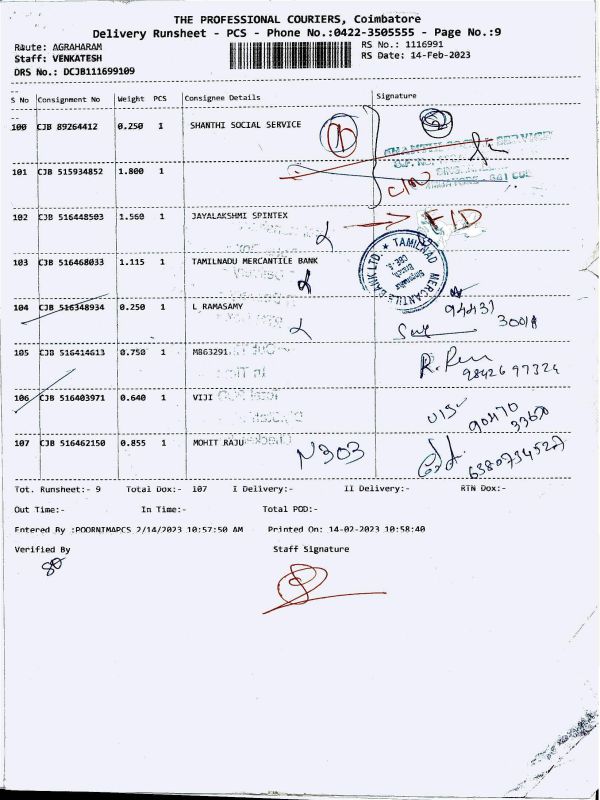 THE PROFESSIONAL COURIERS, Coimbatore
Delivery Runsheet - PCS - Phone No.:0422-3505555 - Page No.:9
Route: AGRAHARAM RS No.: 1116991
Staff: VENKATESH RS Date: 14-Feb-2023
DRS No.: DCJB111699109
S No Consignment No Weight PCS Consignee Details Signature
100 CJB 89264412 0.250 1 SHANTHI SOCIAL SERVICE
SHANTHI SOCIAL SERVICE
101 CJB 515934852 1.800 1
102 CJB 516448503 1.560 1 JAYALAKSHMI SPINTEX
103 CJB 516468033 1.115 1 TAMILNADU MERCANTILE BANK
TAMILNAD MERCANTILE BANK LTD.
104 CJB 516348934 0.250 1 L RAMASAMY 94431
30018
105 CJB 516414613 0.750 1 MB63291
9842697324
106 CJB 516403971 0.640 1 VIJI
90470
33670
107 CJB 516462150 0.855 1 MOHIT RAJU N303
6380734527
Tot. Runsheet:- 9 Total Dox:- 107 I Delivery:- II Delivery:- RTN Dox:-
Out Time:- In Time:- Total POD:-
Entered By :POORNIMAPCS 2/14/2023 10:57:50 AM Printed On: 14-02-2023 10:58:40
Verified By Staff Signature